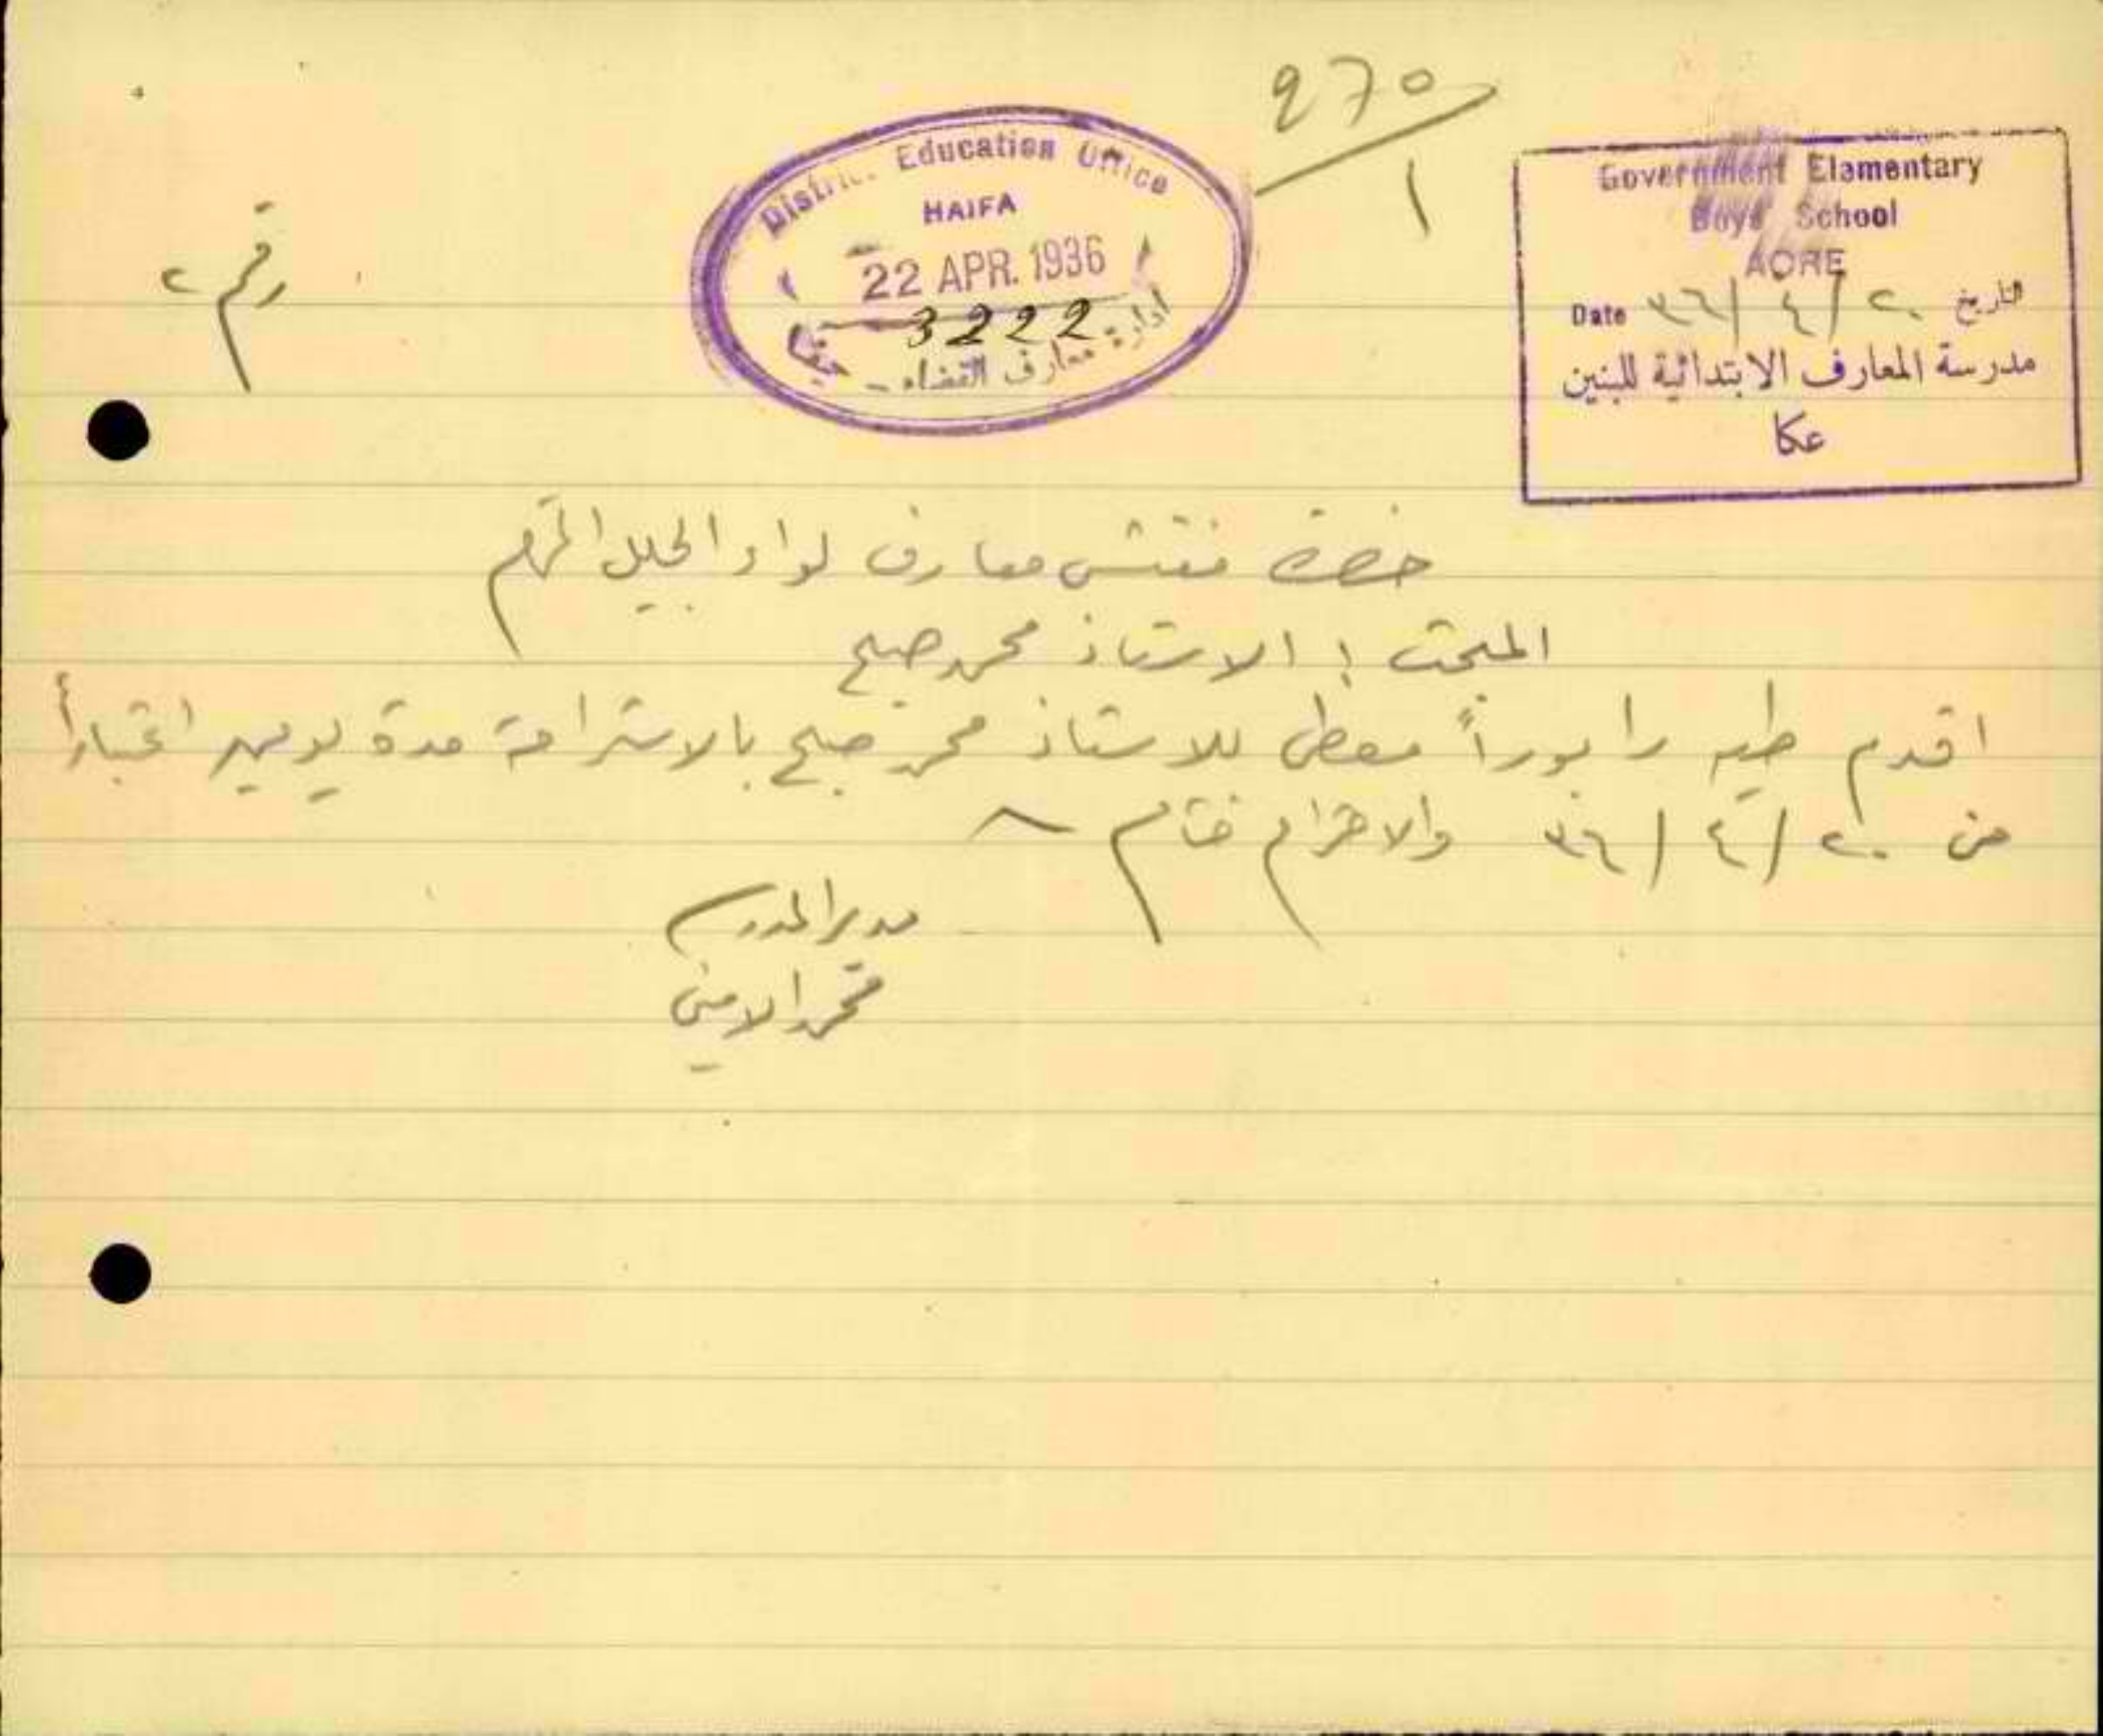 ٩٦٥/١
District Education Office
HAIFA
22 APR. 1936
3222
ادارة معارف القضاء - حيفا
Government Elementary
Boys School
ACRE
Date ٣٦/٤/٢٠ التاريخ
مدرسة المعارف الابتدائية للبنين
عكا
رقم ٢
حضرة مفتش معارف لواء الجليل المحترم
المبحث : الاستاذ محمد صبح
اقدم طيه رابوراً معطى للاستاذ محمد صبح بالاستراحة مدة يومين اعتباراً
من ٣٦/٤/٢٠ والاحترام ختام
مدير المدرسة
محمد الامين